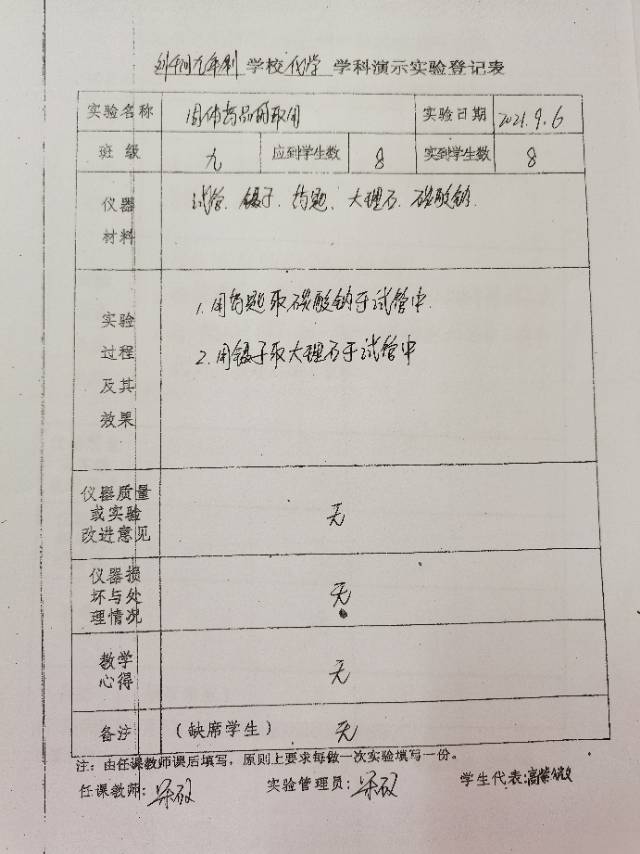 九年制 学校 化学 学科演示实验登记表
实验名称 固体药品的取用 实验日期 2021.9.6
班 级 九 应到学生数 8 实到学生数 8
仪器 试管、镊子、药匙、大理石、碳酸钠.
材料
实验 1.用药匙取碳酸钠于试管中.
过程 2.用镊子取大理石于试管中
及其
效果
仪器质量
或实验 无
改进意见
仪器损
坏与处 无
理情况
教学 无
心得
备注 (缺席学生) 无
注:由任课教师课后填写,原则上要求每做一次实验填写一份。
任课教师: 实验管理员: 学生代表:高紫